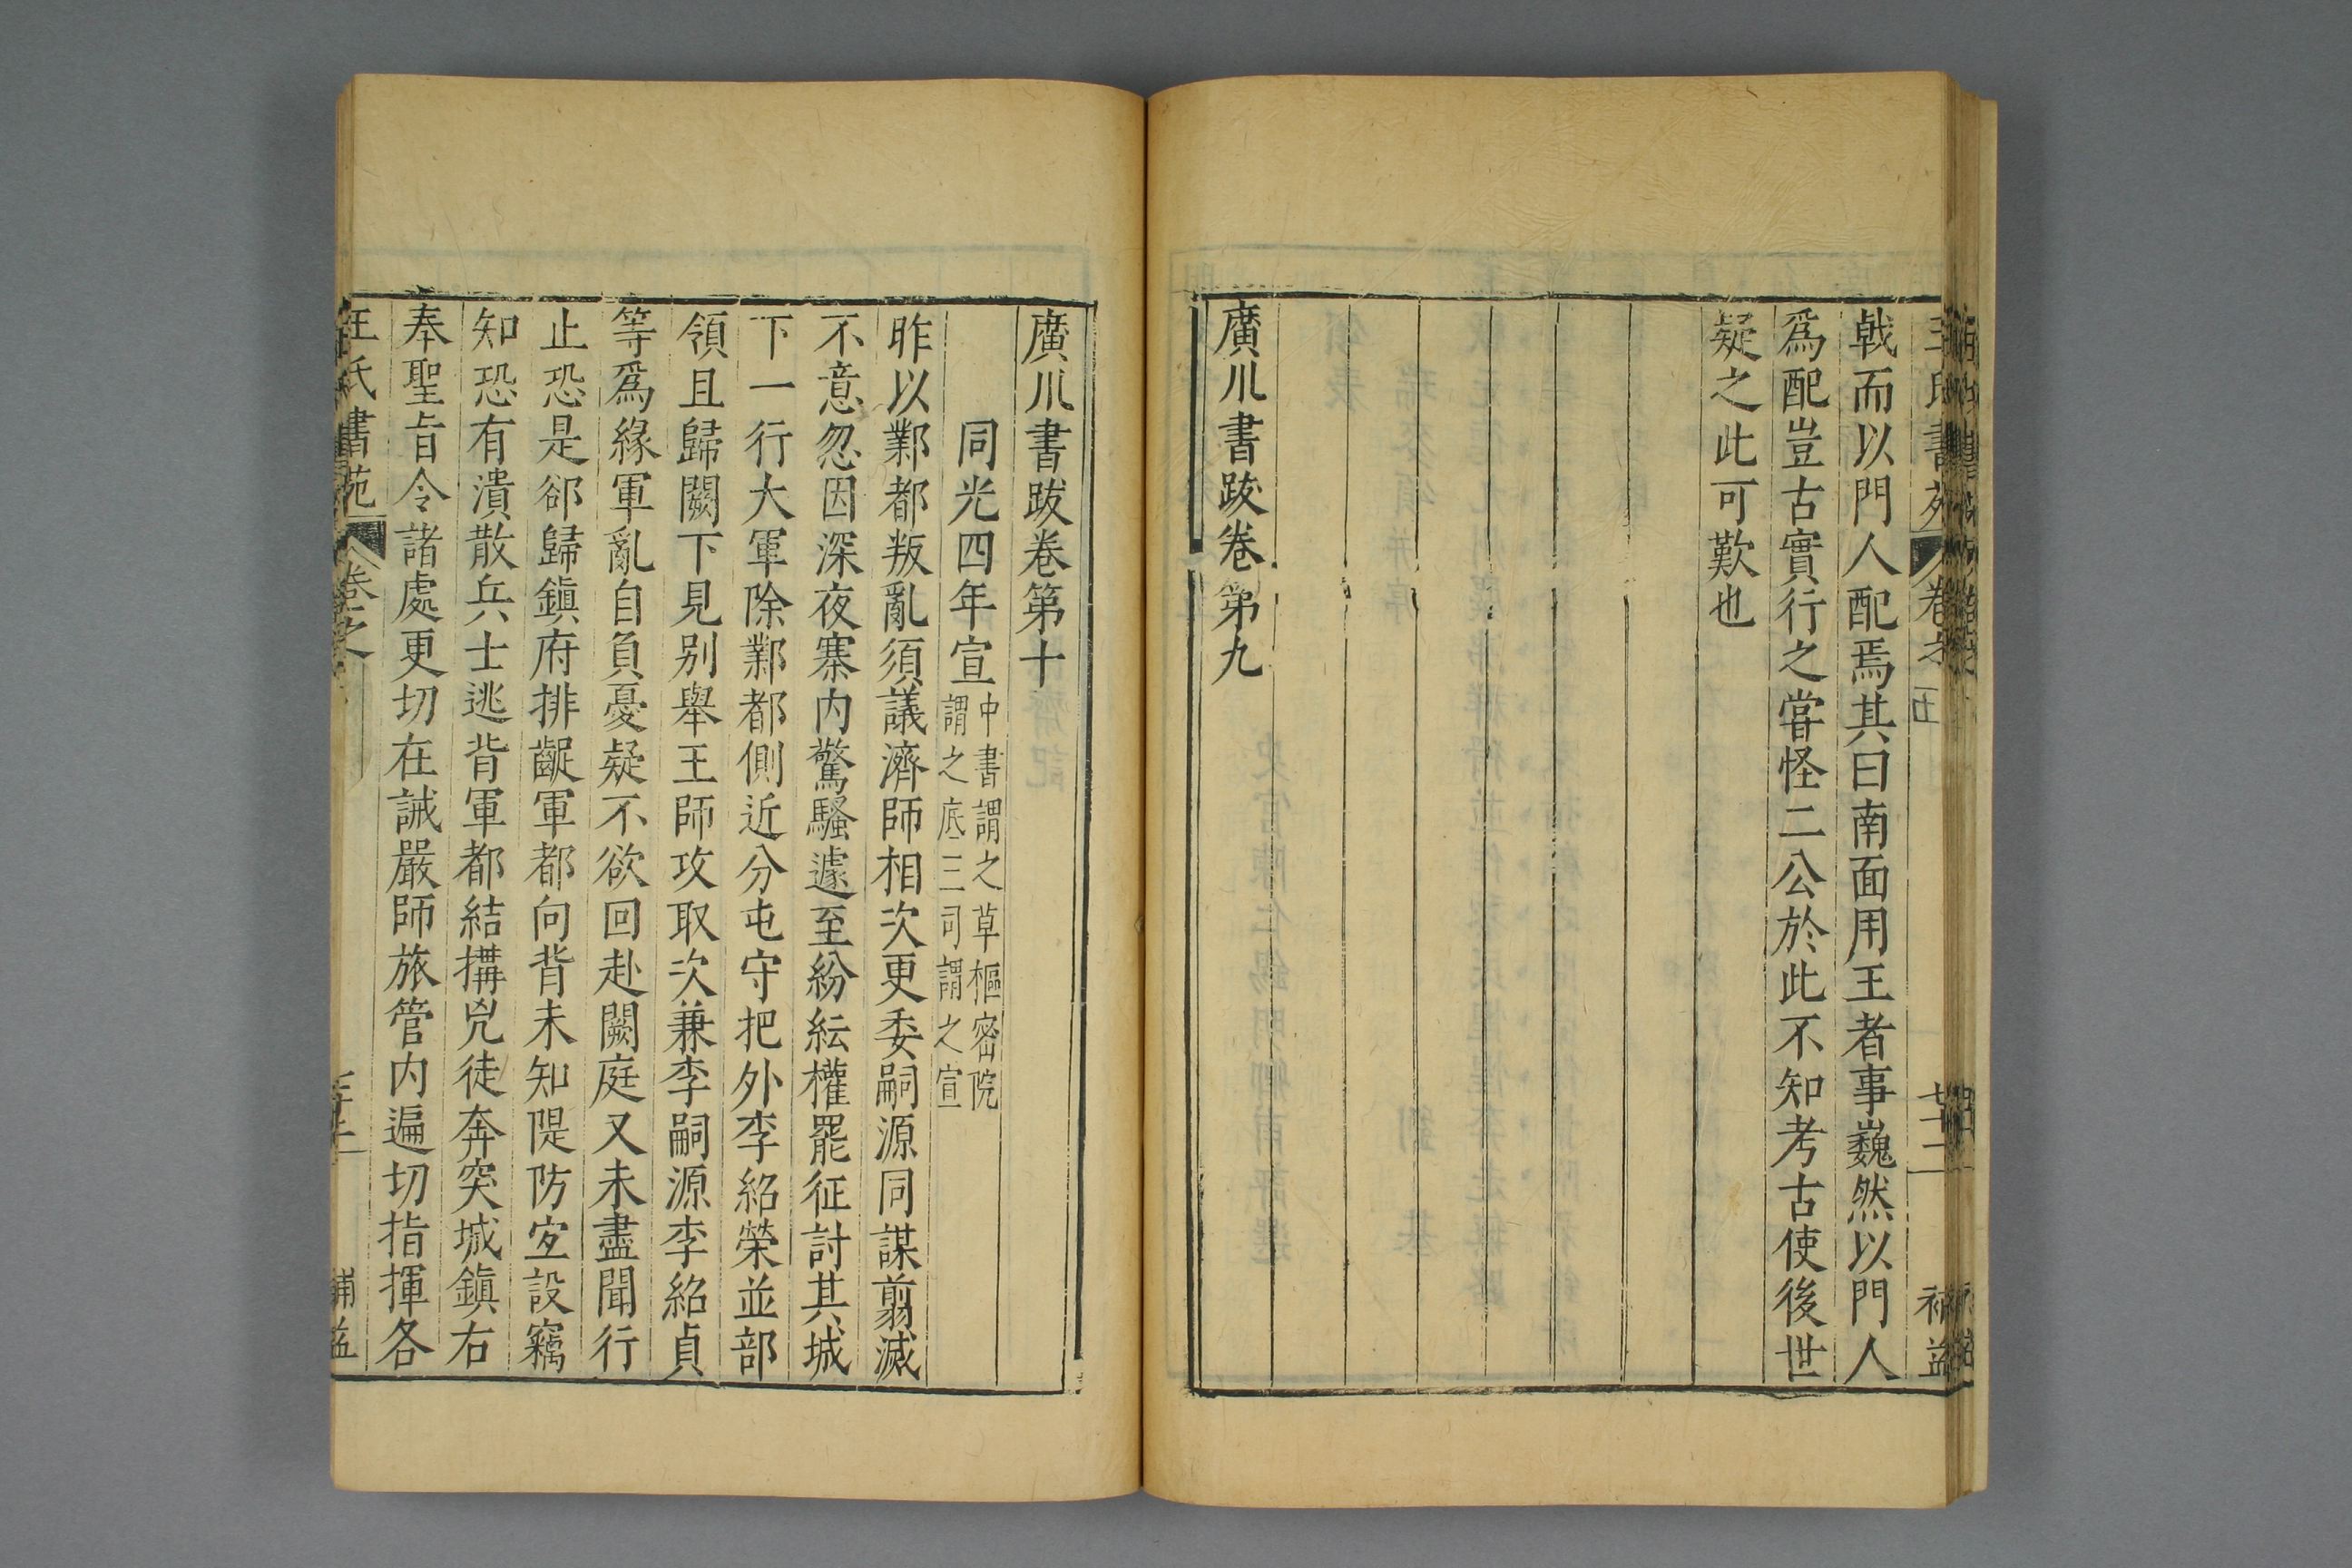 戟而以門人配焉其曰南面用王者事巍然以門人
爲配豈古實行之甞怪二公於此不知考古使後世
疑之此可歎也
廣川書跋卷第九
廣川書跋卷第十
同光四年宣中書謂之草樞密院
謂之底三司謂之宣
昨以鄴都叛亂須議濟師相次更委嗣源同謀翦滅
不意忽因深夜寨内驚騷遽至紛紜權罷征討其城
下一行大軍除鄴都側近分屯守把外李紹榮並部
領且歸闕下見别舉王師攻取次兼李嗣源李紹貞
等爲緣軍亂自負憂疑不欲回赴闕庭又未盡聞行
止恐是郤歸鎮府排齪軍都向背未知隄防宐設竊
知恐有潰散兵士逃背軍都結搆兇徒奔突城鎮右
奉聖旨令諸處更切在誡嚴師旅管内遍切指揮各
王氏書苑
卷之
補益